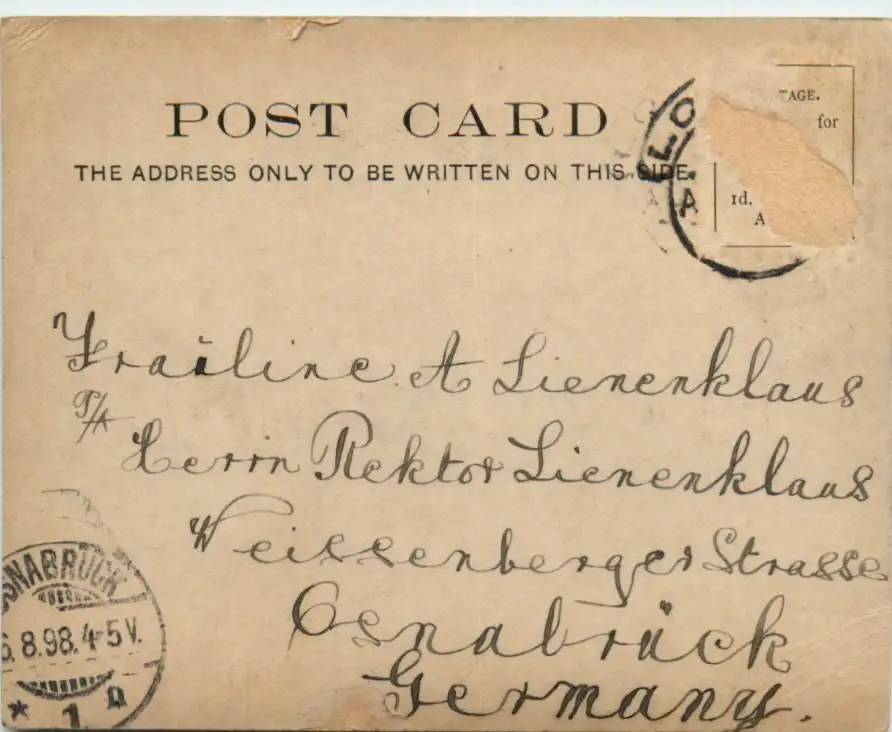 POST CARD
THE ADDRESS ONLY TO BE WRITTEN ON THIS SIDE.
AGE.
for
rd.
A
LO
A
Fraüline A Lienenklaus
P/A
Herrn Rektor Lienenklaus
Weissenberger Strasse
Osnabrück
Germany.
OSNABRÜCK
6.8.98.4-5V.
* 1 a